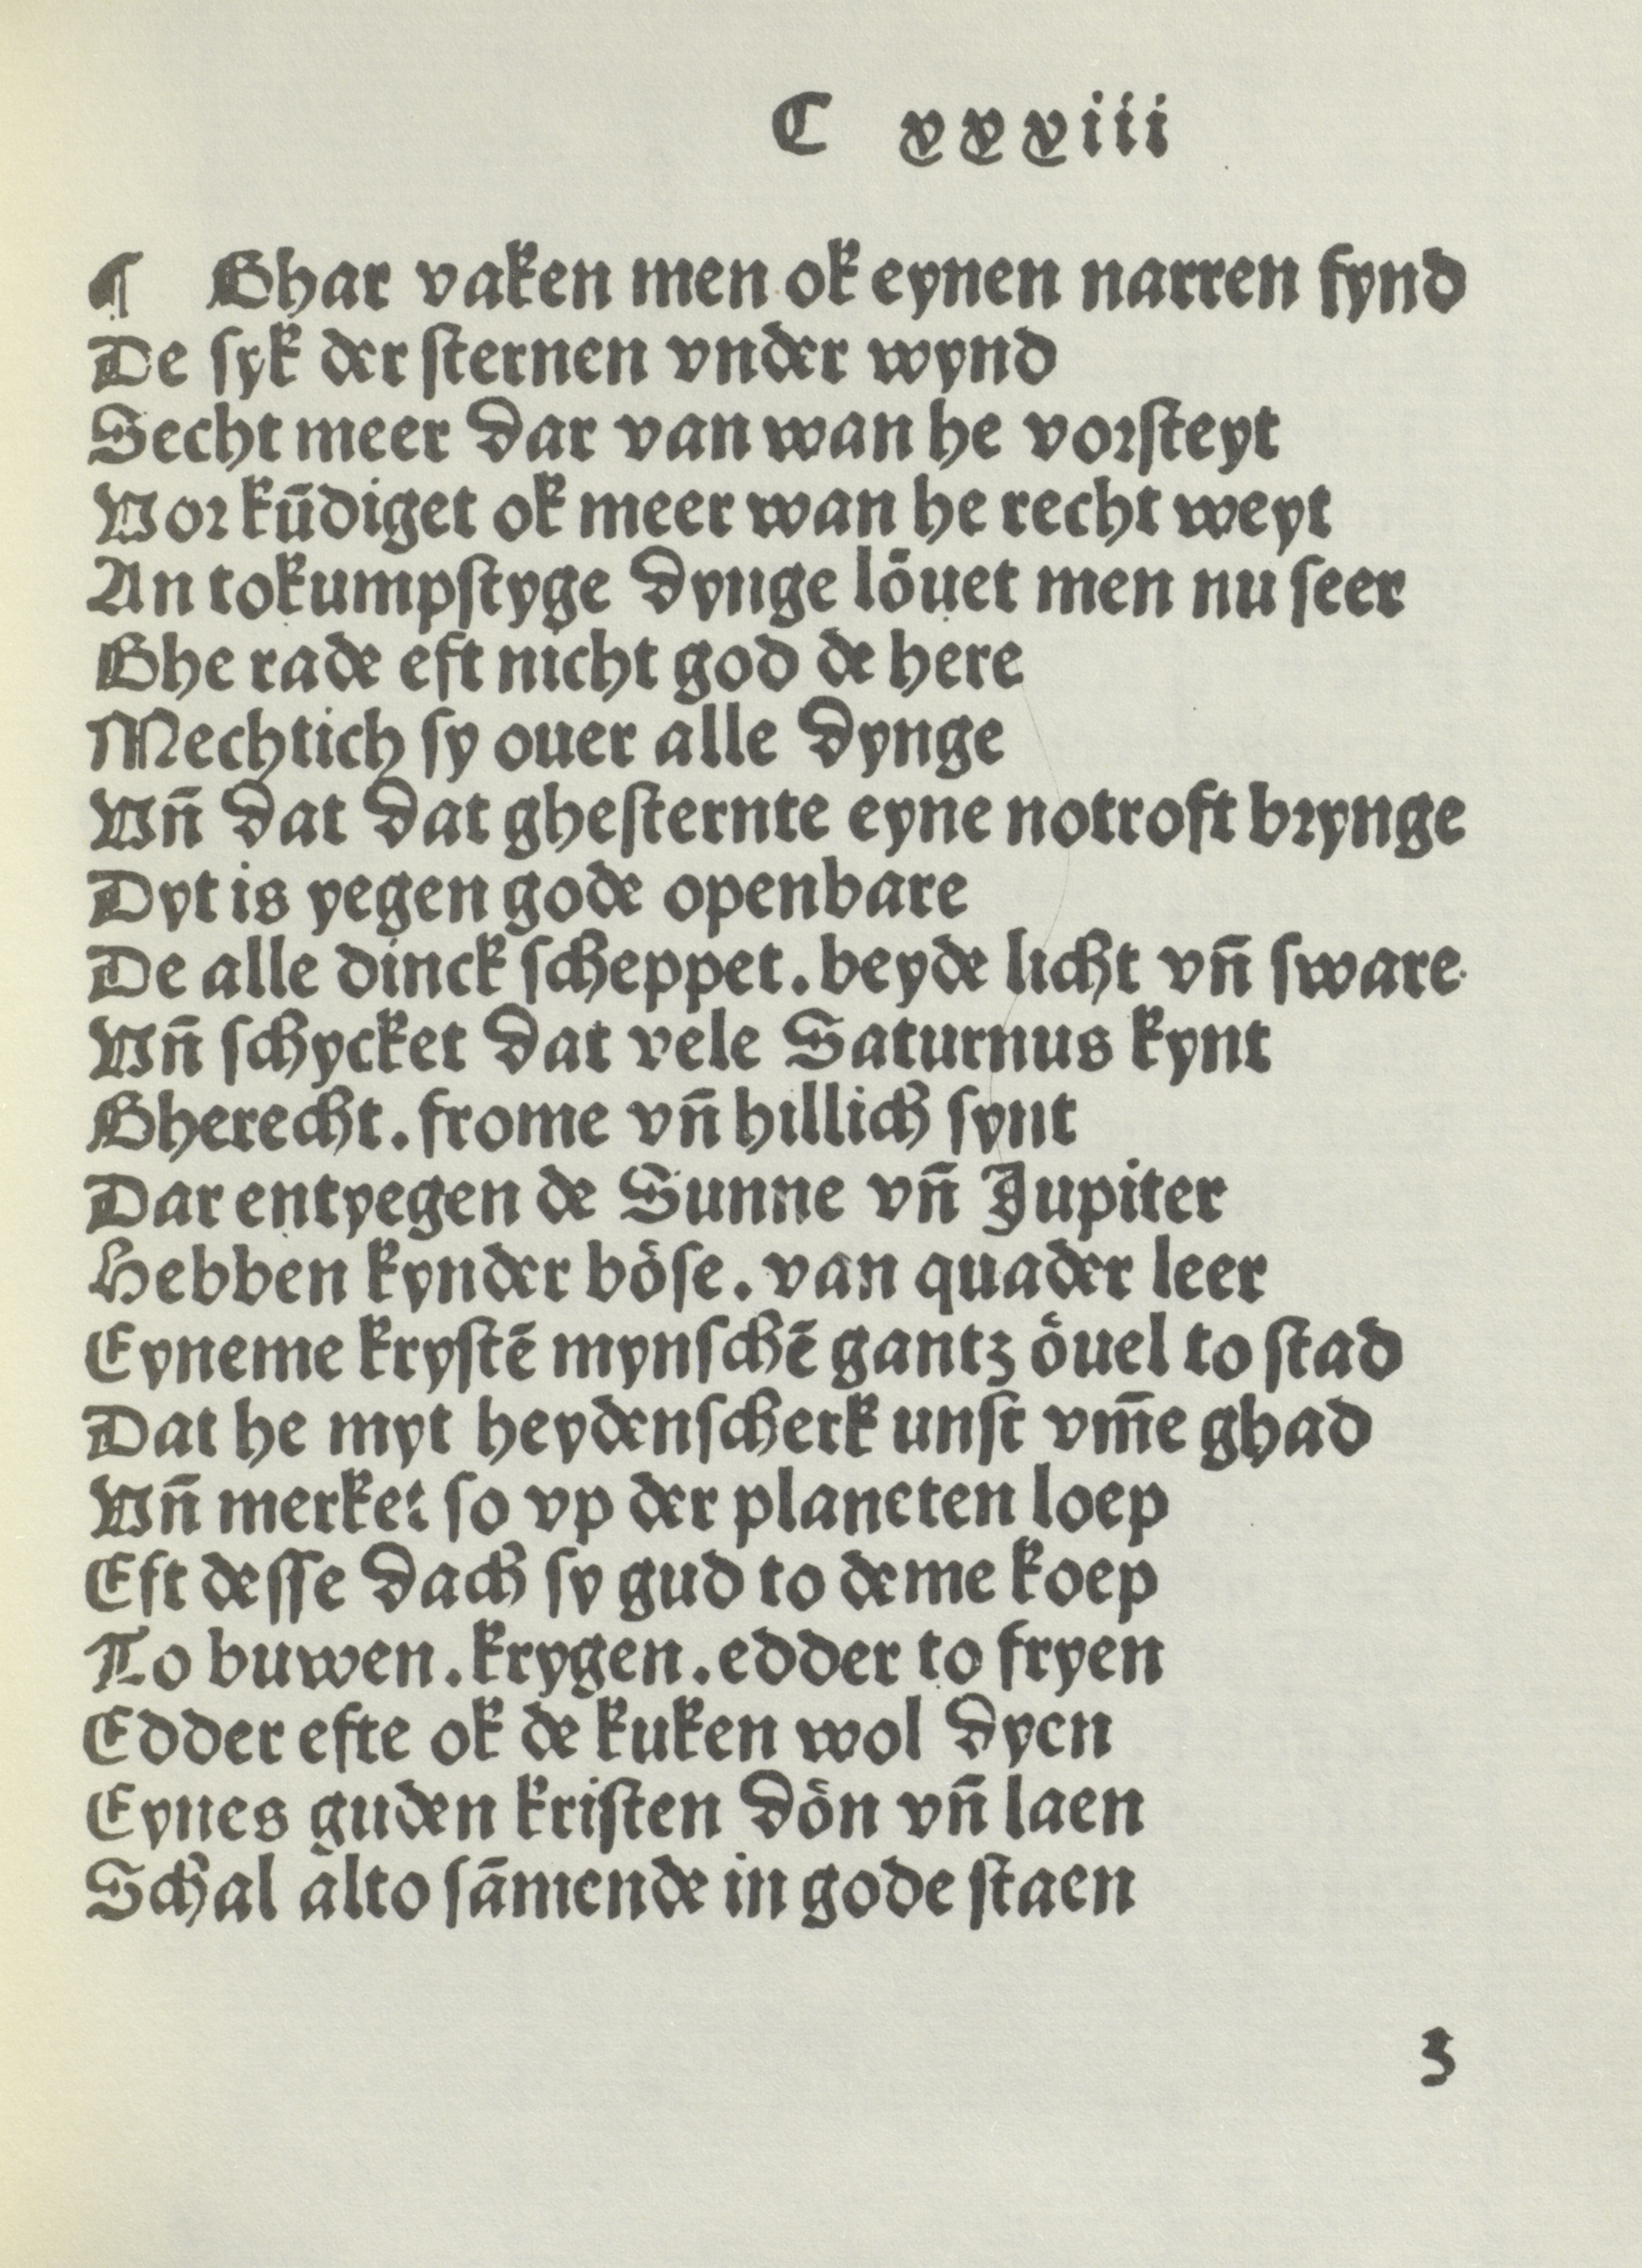 C xxxiii
¶ Ghar vaken men ok eynen narren fynd
De ſyk der ſternen vnder wynd
Secht meer dar van wan he voꝛſteyt
Voꝛ kūdiget ok meer wan he recht weyt
An tokumpſtyge dynge löuet men nu ſeer
Ghe rade eft nicht god de here
Mechtich ſy ouer alle dynge
Vn̄ dat dat gheſternte eyne notroft bꝛynge
Dyt is yegen gode openbare
De alle dinck ſcheppet. beyde licht vn̄ ſware.
Vn̄ ſchycket dat vele Saturnus kynt
Gherecht. frome vn̄ hillich ſynt
Dar entyegen de Sunne vn̄ Jupiter
Hebben kynder böſe. van quader leer
Eyneme kryſtē mynſchē gantz öuel to ſtad
Dat he myt heydenſcherk unſt vm̄e ghad
Vn̄ merket ſo vp der planeten loep
Eft deſſe dach ſy gud to deme koep
To buwen. krygen. edder to fryen
Edder efte ok de kuken wol dyen
Eynes guden kriſten dön vn̄ laen
Schal alto ſāmende in gode ſtaen
3